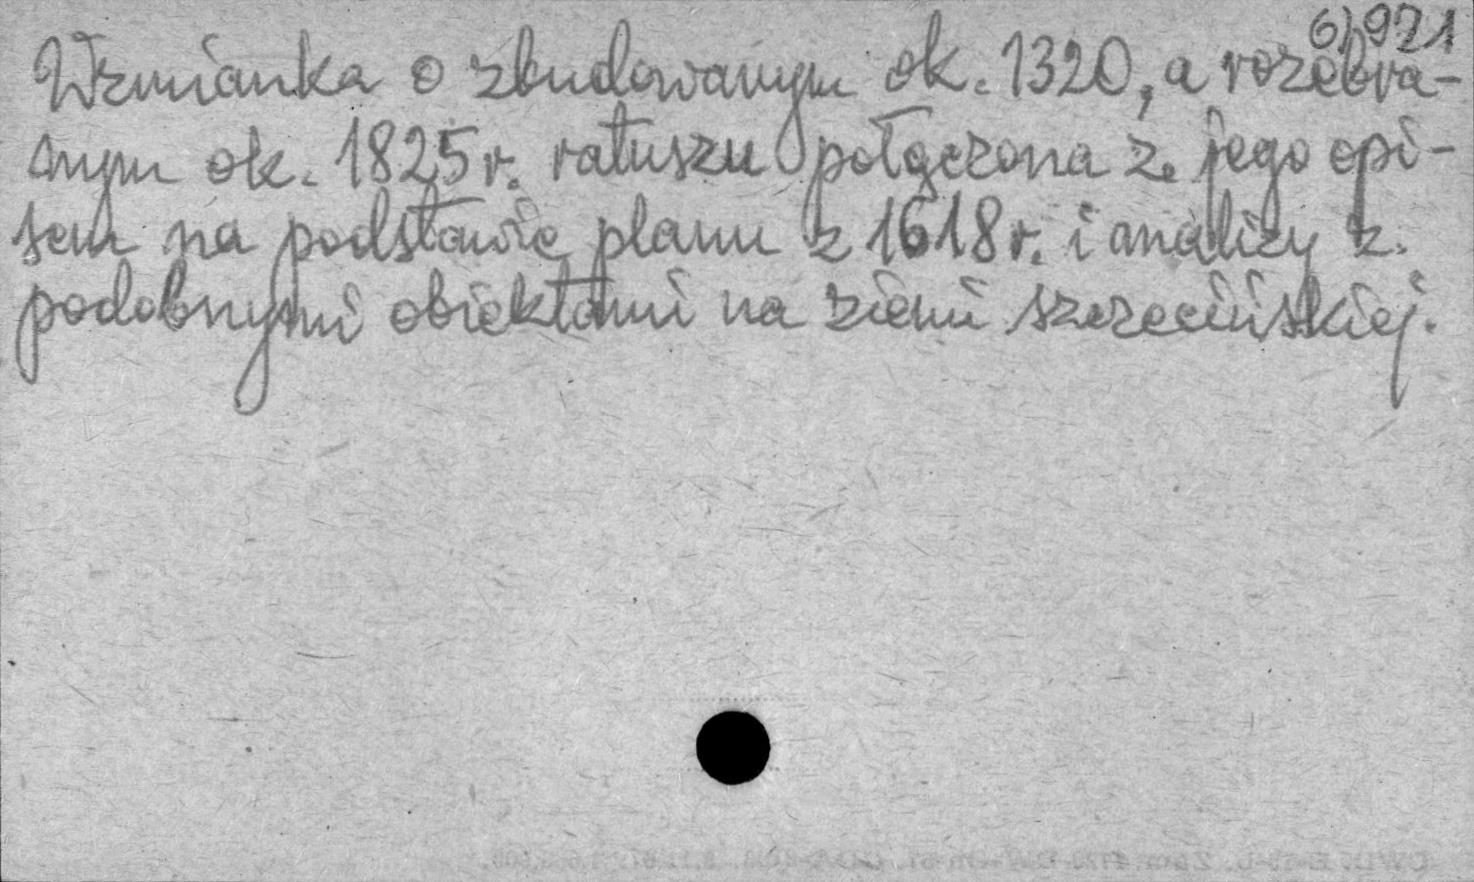 6) 921
Wzmianka o zbudowanym ok. 1320, a rozebra-
nym ok. 1825 r. ratuszu połączona z jego opi-
sem na podstawie planu z 1618 r. i analizy z
podobnymi obiektami na ziemi szczecińskiej.